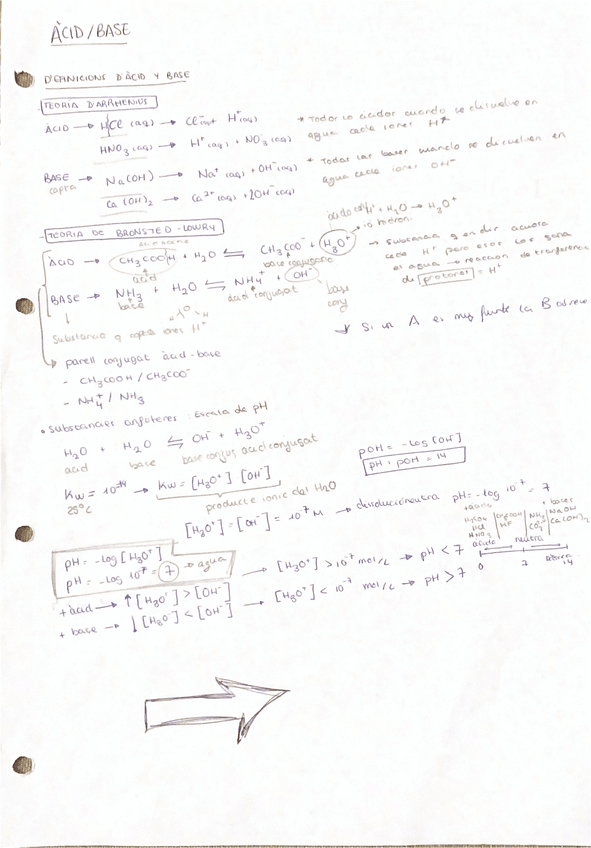 ÀCID/BASE
DEFINICIONS D'ÀCID Y BASE
TEORIA D'ARRHENIUS
ÀCID → HCl (aq) → Cl⁻(aq) H⁺(aq)
* Todos los acidos cuando se disuelve en
agua cede iones H⁺
HNO₃ (aq) → H⁺(aq) + NO₃⁻(aq)
BASE → Na(OH) → Na⁺(aq) + OH⁻(aq)
capta
* Todas las bases cuando se disuelven en
agua cede iones OH⁻
Ca(OH)₂ → Ca²⁺(aq) + 2OH⁻(aq)
H⁺ + H₂O → H₃O⁺
TEORIA DE BRONSTED-LOWRY
ÀCID → CH₃COOH + H₂O ⇆ CH₃COO⁻ + H₃O⁺
àcid base conjugada
→ substancia q en dir acuosa
cede H⁺ para esto los gana
el agua → reacción de transferencia
de protones = H⁺
BASE → NH₃ + H₂O ⇆ NH₄⁺ + OH⁻
base àcid conjugat base
conj
Substància q capta iones H⁺
* Si un A es muy fuerte la B
→ parell conjugat àcid-base
- CH₃COOH / CH₃COO⁻
- NH₄⁺ / NH₃
• Substancies anfòteres : Escala de pH
H₂O + H₂O ⇆ OH⁻ + H₃O⁺
àcid base base conjug àcid conjugat
pOH = -log [OH⁻]
pH + pOH = 14
Kw = 10⁻¹⁴ → Kw = [H₃O⁺] [OH⁻]
25ºC
producte ionic del H₂O
[H₃O⁺] = [OH⁻] = 10⁻⁷ M → disolución neutra pH = -log 10⁻⁷ = 7
pH = -log [H₃O⁺]
pH = -log 10⁻⁷ = 7 → agua
+ àcids
H₂SO₄
HCl
HNO₃
CH₃COOH
HF
NH₃
CO₃²⁻
+ bases
NaOH
Ca(OH)₂
àcida neutra bàsica
0 7 14
+ àcid → ↑ [H₃O⁺] > [OH⁻] → [H₃O⁺] > 10⁻⁷ mol/L → pH < 7
+ base → ↓ [H₃O⁺] < [OH⁻] → [H₃O⁺] < 10⁻⁷ mol/L → pH > 7